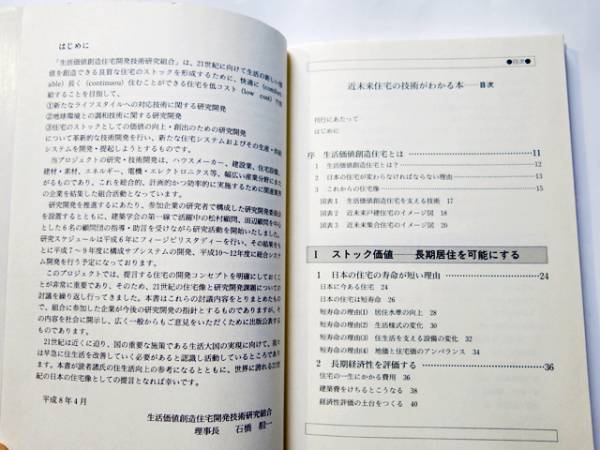 はじめに
「生活価値創造住宅開発技術研究組合」は、21世紀に向けて生活の新しい価
値を創造できる良質な住宅のストックを形成するために、快適に
able）長く（continuous）住むことができる住宅を低コスト（low cost）で供
給することを目指して、
①新たなライフスタイルへの対応技術に関する研究開発
②地球環境との調和技術に関する研究開発
③住宅のストックとしての価値の向上・創出のための研究開発
について革新的な技術開発を行い、新たな住宅システムおよびその生産・供給
システムを開発・提起しようとするものです。
当プロジェクトの研究・技術開発は、ハウスメーカー、建設業、住宅設備、
建材・素材、エネルギー、電機・エレクトロニクス等、幅広い産業分野にまた
がるものであり、これを総合的、計画的かつ効率的に実施するために関連業界
の企業を結集した組合活動となっています。
研究開発を推進するにあたり、参加企業の研究者で構成した研究開発委員会
を設置するとともに、建築学会の第一線で活躍中の松村顧問、田辺顧問を中心
とした6名の顧問団の指導・助言を受けながら研究活動を開始いたしました。
研究スケジュールは平成6年にフィージビリスタディーを行い、その結果をも
とに平成7～9年度に構成サブシステムの開発、平成10～12年度に総合システ
ム開発を行う予定になっております。
このプロジェクトでは、提言する住宅の開発コンセプトを明確にしておくこ
とが非常に重要であり、そのため、21世紀の住宅像と研究開発課題についての
討議を繰り返し行ってきました。本書はこれらの討議内容をとりまとめたもの
で、組合に参加した企業が今後の研究開発の指針とするものでありますが、そ
の内容を社会に開示し、広く一般からもご意見をいただくために出版公表する
ものであります。
21世紀は近くに迫り、国の重要な施策である生活大国の実現に向けて、我々
は早急に住生活を改善していく必要があると認識し活動しているところであり
ます。本書が読者諸氏の住生活向上の参考になるとともに、世界に誇れる21世
紀の日本の住宅像としての提言となれば幸いです。
平成8年4月
生活価値創造住宅開発技術研究組合
理事長 石橋 殷一
●目次●
近未来住宅の技術がわかる本——目次
刊行にあたって
はじめに
序 生活価値創造住宅とは 11
1 生活価値創造住宅とは? 12
2 日本の住宅が変わらなければならない理由 13
3 これからの住宅像 15
図表1 生活価値創造住宅を支える技術 17
図表2 近未来戸建住宅のイメージ図 18
図表3 近未来集合住宅のイメージ図 20
I ストック価値——長期居住を可能にする
1 日本の住宅の寿命が短い理由 24
日本に今ある住宅 24
日本の住宅は短寿命 26
短寿命の理由① 居住水準の向上 28
短寿命の理由② 生活様式の変化 30
短寿命の理由③ 住生活を支える設備の変化 32
短寿命の理由④ 地価と住宅価のアンバランス 34
2 長期経済性を評価する 36
住宅の一生にかかる費用 36
建築費をけちるとこうなる 38
経済性評価の土台をつくる 40